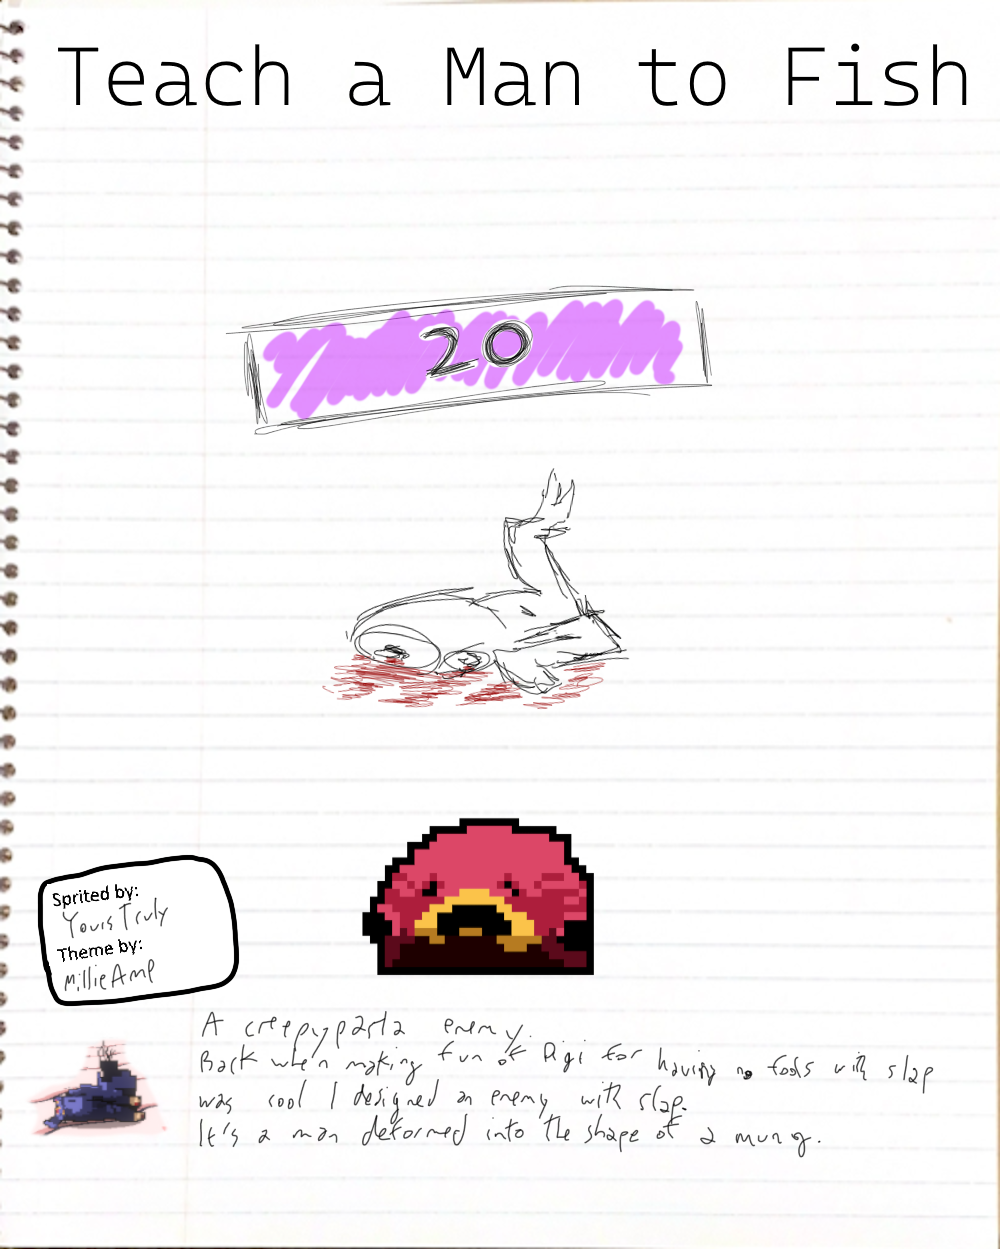 Teach a Man to Fish
20
Sprited by:
Yours Truly
Theme by:
MillieAmp
A creepypasta enemy.
Back when making fun of Digi for having no fools with slap
was cool I designed an enemy with slap.
It's a man deformed into the shape of a mung.